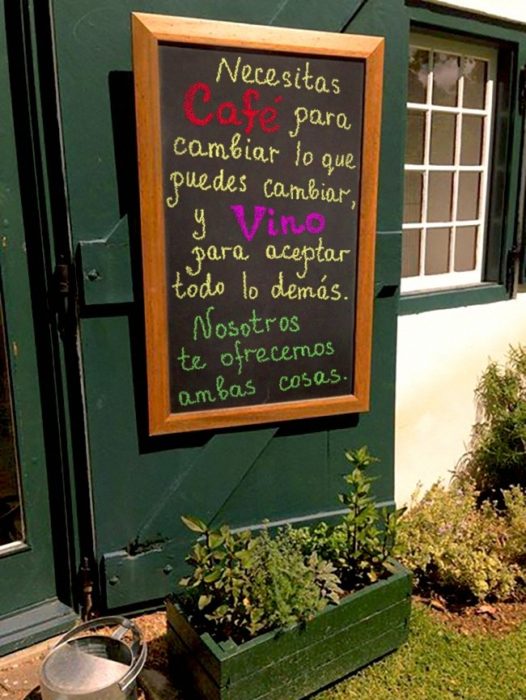 Necesitas
Café para
cambiar lo que
puedes cambiar,
y Vino
para aceptar
todo lo demás.
Nosotros
te ofrecemos
ambas cosas.